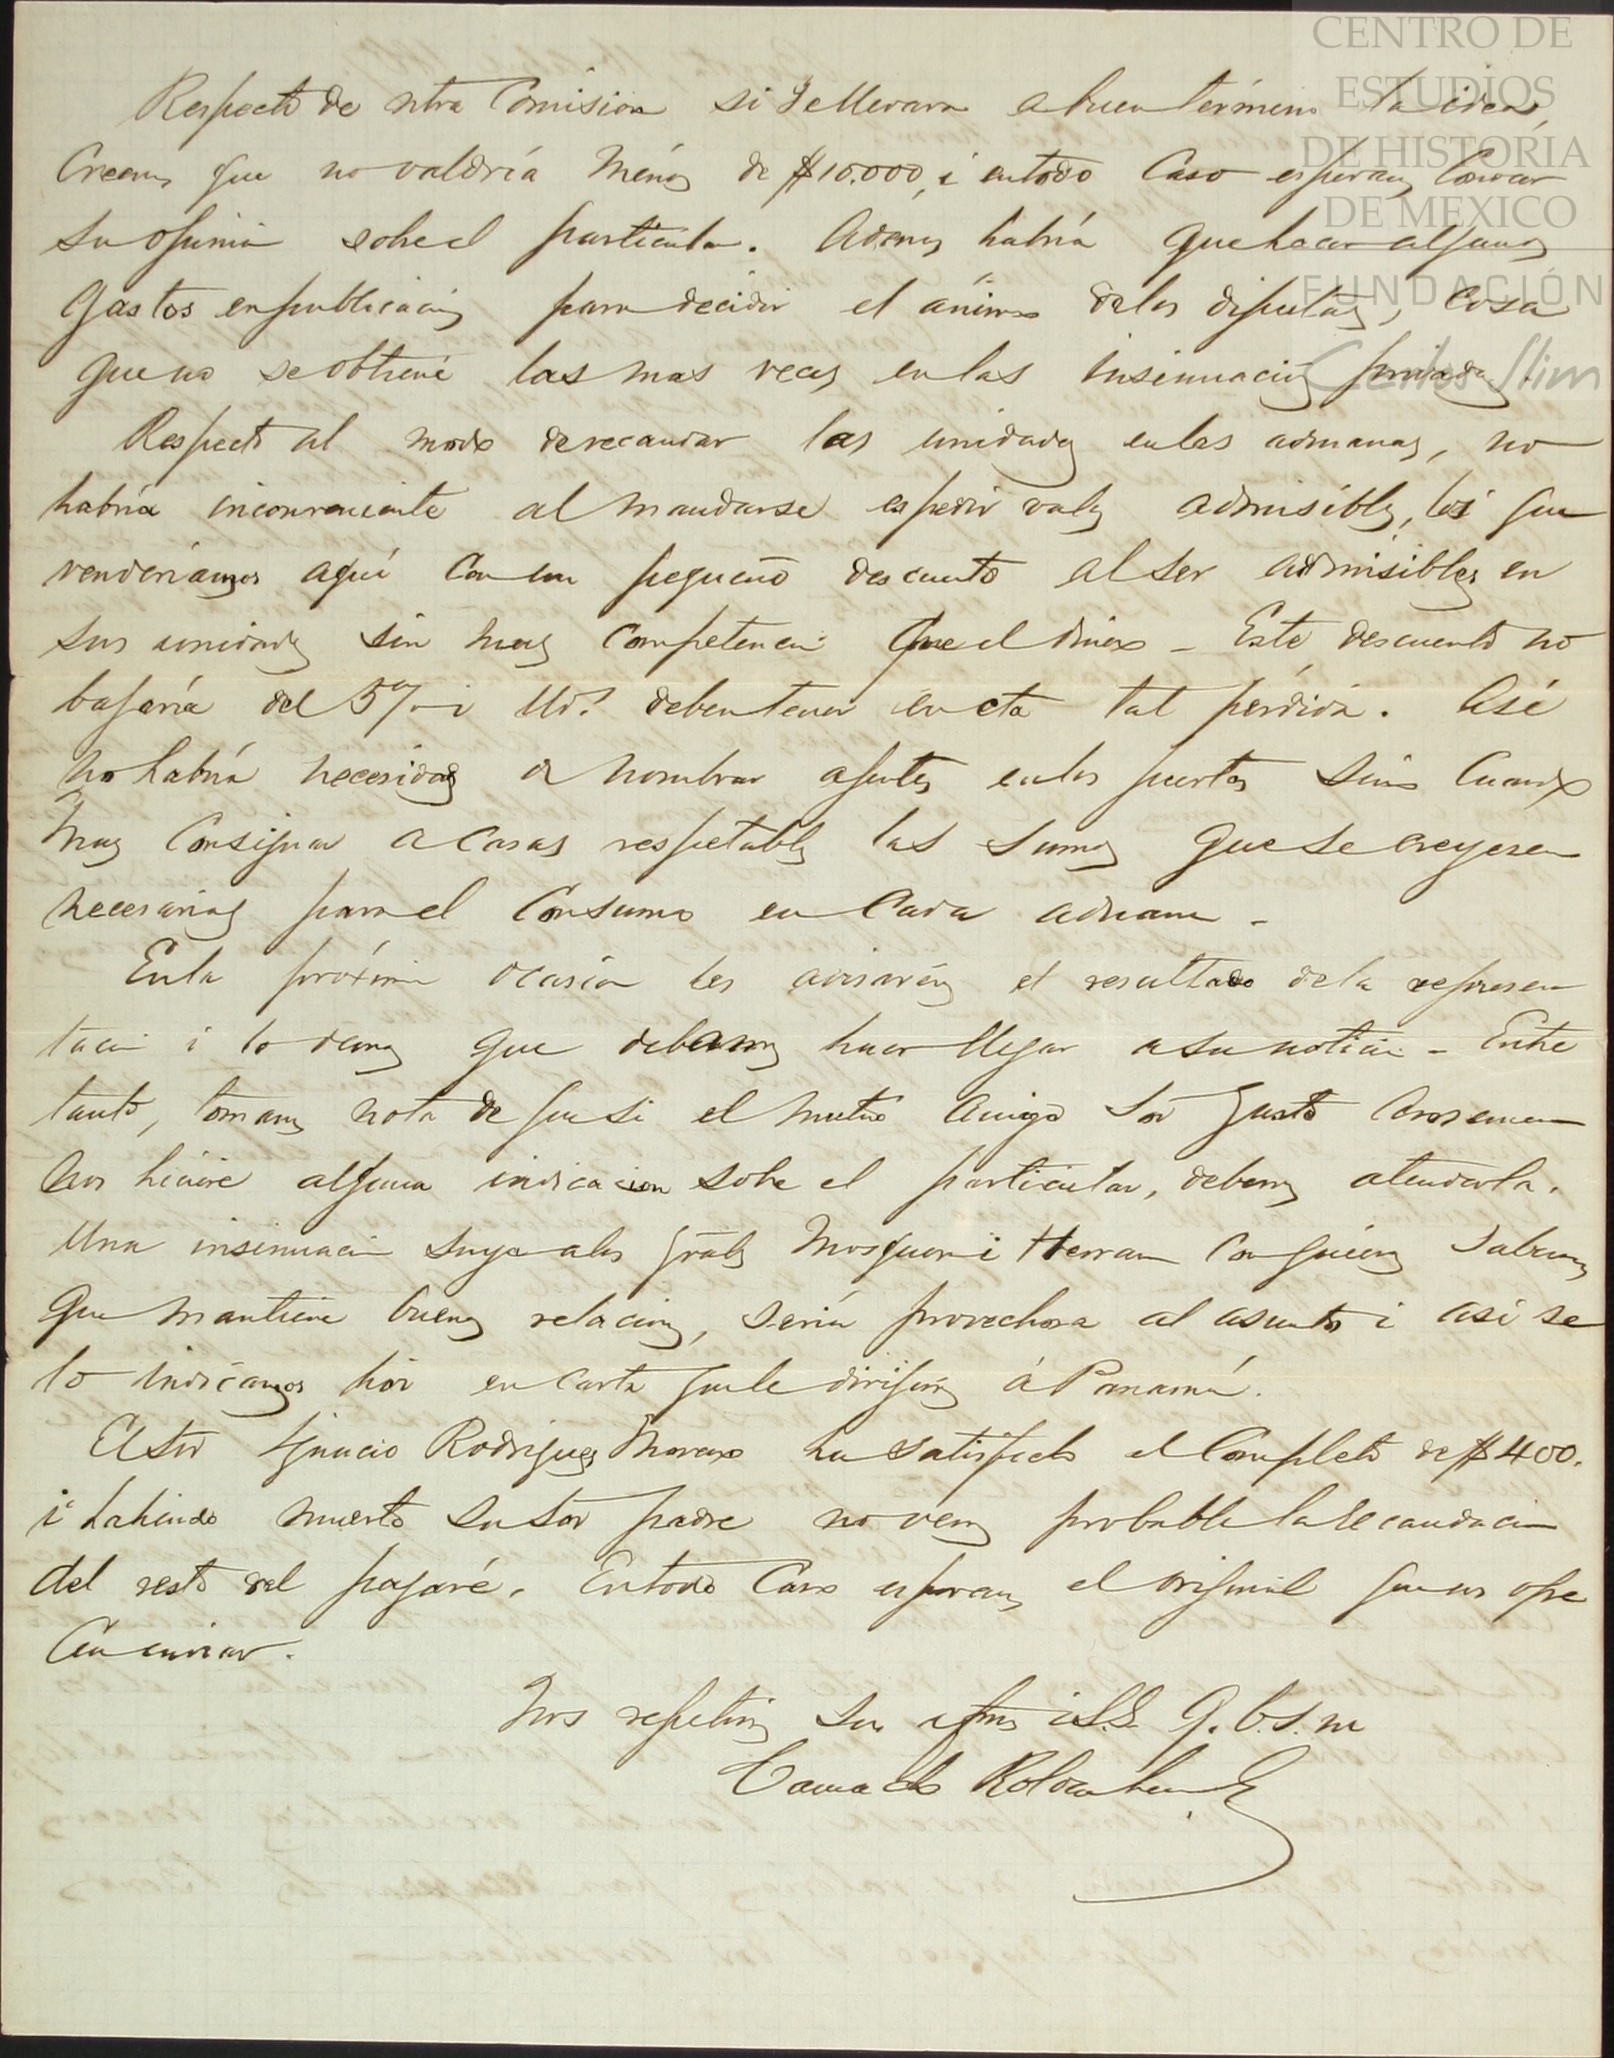 CENTRO DE
ESTUDIOS
DE HISTORIA
DE MEXICO
FUNDACIÓN
Carlos Slim
Respecto de ntra Comision si se llevara a buen término la idea,
Creemos que no valdría ménos de $10.000, i en todo Caso esperamos Conocer
su opinion sobre el particular. Ademas habría que hacer algunos
Gastos en publicaciones para decidir el ánimo de los diputados, Cosa
que no se obtiene las mas veces en las insinuaciones privadas.
Respecto al modo de recaudar las unidades en las aduanas, no
habría inconveniente al mandarse espedir vales admisibles, los que
venderíamos aquí Con un pequeño descuento al ser admisibles en
sus unidades sin mas Competencia que el dinero - Este descuento no
bajaría del 5% i Uds. deben tener en cta tal pérdida. Así
no habría necesidad de nombrar agentes en los puertos sino Cuando
mas Consignar a Casas respetables las sumas que se creyesen
necesarias para el Consumo en Cada aduana -
En la próxima ocasion les avisarémos el resultado de la represen
tacion i lo demas que debamos hacer llegar a su noticia - Entre
tanto, tomamos nota de que si el mutuo amigo Sor Justo Arosemena
nos hiciere alguna indicacion sobre el particular, debemos atenderla.
Una insinuacion suya a los Grales Mosquera i Herran Con quienes sabemos
que mantiene buenas relaciones, sería provechosa al asunto i así se
lo indicamos hoi en carta que le dirijimos á Panamá.
El Sor Ignacio Rodriguez Moreno ha satisfecho el Completo de $400.
i habiendo muerto su Sor padre no vemos probable la recaudacion
del resto del pagaré. En todo Caso esperamos el orijinal que nos ofre
Cen enviar.
Nos repetimos sus afmos i S.S. Q.b.s.m
Camacho Roldan hermanos